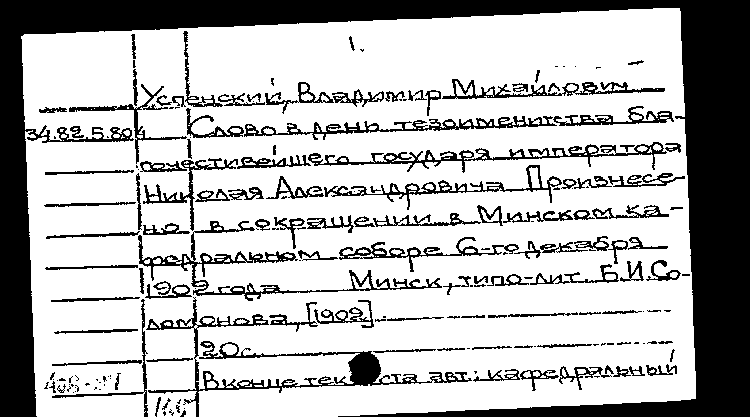 1.
Успенский, Владимир Михайлович
34.82.5.804 Слово в день тезоименитства бла-
гочестивейшего государя императора
Николая Александровича Произнесе-
но в сокращении в Минском ка-
федральном соборе 6-го декабря
1909 года Минск, типо-лит. Б.И.Со-
ломонова, [1909].
20с.
В конце текста авт.: кафедральный